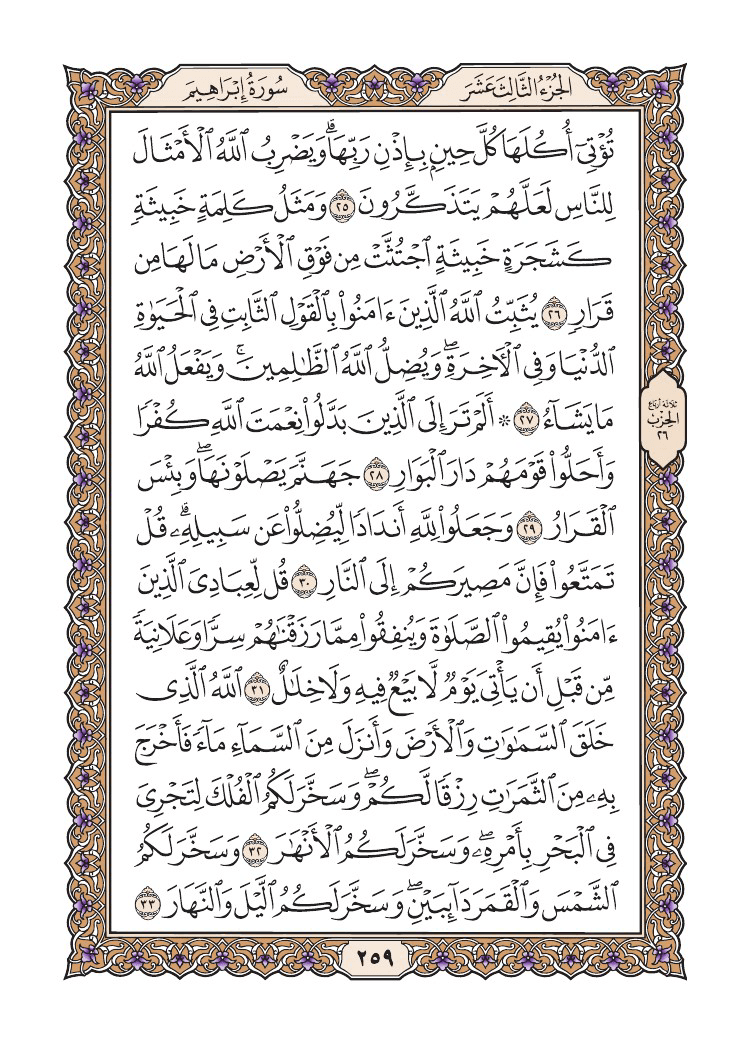 الجُزْءُ الثَّالِثَ عَشَرَ
سُورَةُ إِبْرَاهِيمَ
تُؤْتِىٓ أُكُلَهَا كُلَّ حِينٍۭ بِإِذْنِ رَبِّهَاۗ وَيَضْرِبُ ٱللَّهُ ٱلْأَمْثَالَ
لِلنَّاسِ لَعَلَّهُمْ يَتَذَكَّرُونَ ٢٥ وَمَثَلُ كَلِمَةٍ خَبِيثَةٍ
كَشَجَرَةٍ خَبِيثَةٍ ٱجْتُثَّتْ مِن فَوْقِ ٱلْأَرْضِ مَا لَهَا مِن
قَرَارٍ ٢٦ يُثَبِّتُ ٱللَّهُ ٱلَّذِينَ ءَامَنُوا۟ بِٱلْقَوْلِ ٱلثَّابِتِ فِى ٱلْحَيَوٰةِ
ٱلدُّنْيَا وَفِى ٱلْـَٔاخِرَةِۖ وَيُضِلُّ ٱللَّهُ ٱلظَّـٰلِمِينَۚ وَيَفْعَلُ ٱللَّهُ
مَا يَشَآءُ ٢٧ ۞ أَلَمْ تَرَ إِلَى ٱلَّذِينَ بَدَّلُوا۟ نِعْمَتَ ٱللَّهِ كُفْرًا
وَأَحَلُّوا۟ قَوْمَهُمْ دَارَ ٱلْبَوَارِ ٢٨ جَهَنَّمَ يَصْلَوْنَهَاۖ وَبِئْسَ
ٱلْقَرَارُ ٢٩ وَجَعَلُوا۟ لِلَّهِ أَندَادًا لِّيُضِلُّوا۟ عَن سَبِيلِهِۦۗ قُلْ
تَمَتَّعُوا۟ فَإِنَّ مَصِيرَكُمْ إِلَى ٱلنَّارِ ٣٠ قُل لِّعِبَادِىَ ٱلَّذِينَ
ءَامَنُوا۟ يُقِيمُوا۟ ٱلصَّلَوٰةَ وَيُنفِقُوا۟ مِمَّا رَزَقْنَـٰهُمْ سِرًّا وَعَلَانِيَةً
مِّن قَبْلِ أَن يَأْتِىَ يَوْمٌ لَّا بَيْعٌ فِيهِ وَلَا خِلَـٰلٌ ٣١ ٱللَّهُ ٱلَّذِى
خَلَقَ ٱلسَّمَـٰوَٰتِ وَٱلْأَرْضَ وَأَنزَلَ مِنَ ٱلسَّمَآءِ مَآءً فَأَخْرَجَ
بِهِۦ مِنَ ٱلثَّمَرَٰتِ رِزْقًا لَّكُمْۖ وَسَخَّرَ لَكُمُ ٱلْفُلْكَ لِتَجْرِىَ
فِى ٱلْبَحْرِ بِأَمْرِهِۦۖ وَسَخَّرَ لَكُمُ ٱلْأَنْهَـٰرَ ٣٢ وَسَخَّرَ لَكُمُ
ٱلشَّمْسَ وَٱلْقَمَرَ دَآئِبَيْنِۖ وَسَخَّرَ لَكُمُ ٱلَّيْلَ وَٱلنَّهَارَ ٣٣
ثلاثة أرباع
الحِزْبُ
٢٦
٢٥٩